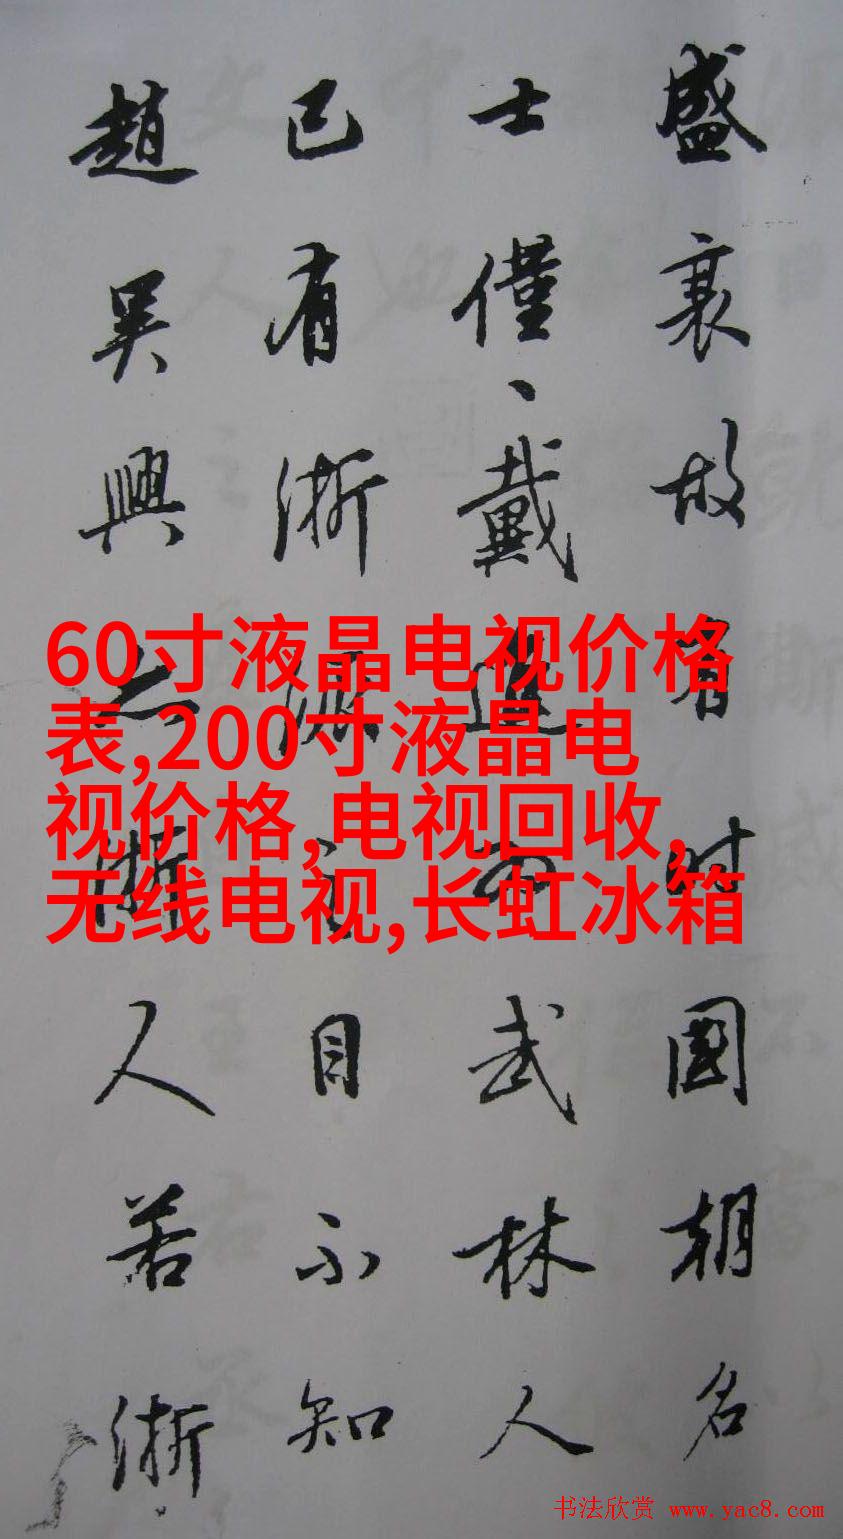 盛衰故有时國朝名
士僅、戴進為武林人
已有浙派之目不知
趙吳興亦浙人若浙
60寸液晶电视价格
表,200寸液晶电
视价格,电视回收,
无线电视,长虹冰箱
书法欣赏 www.yac8.com